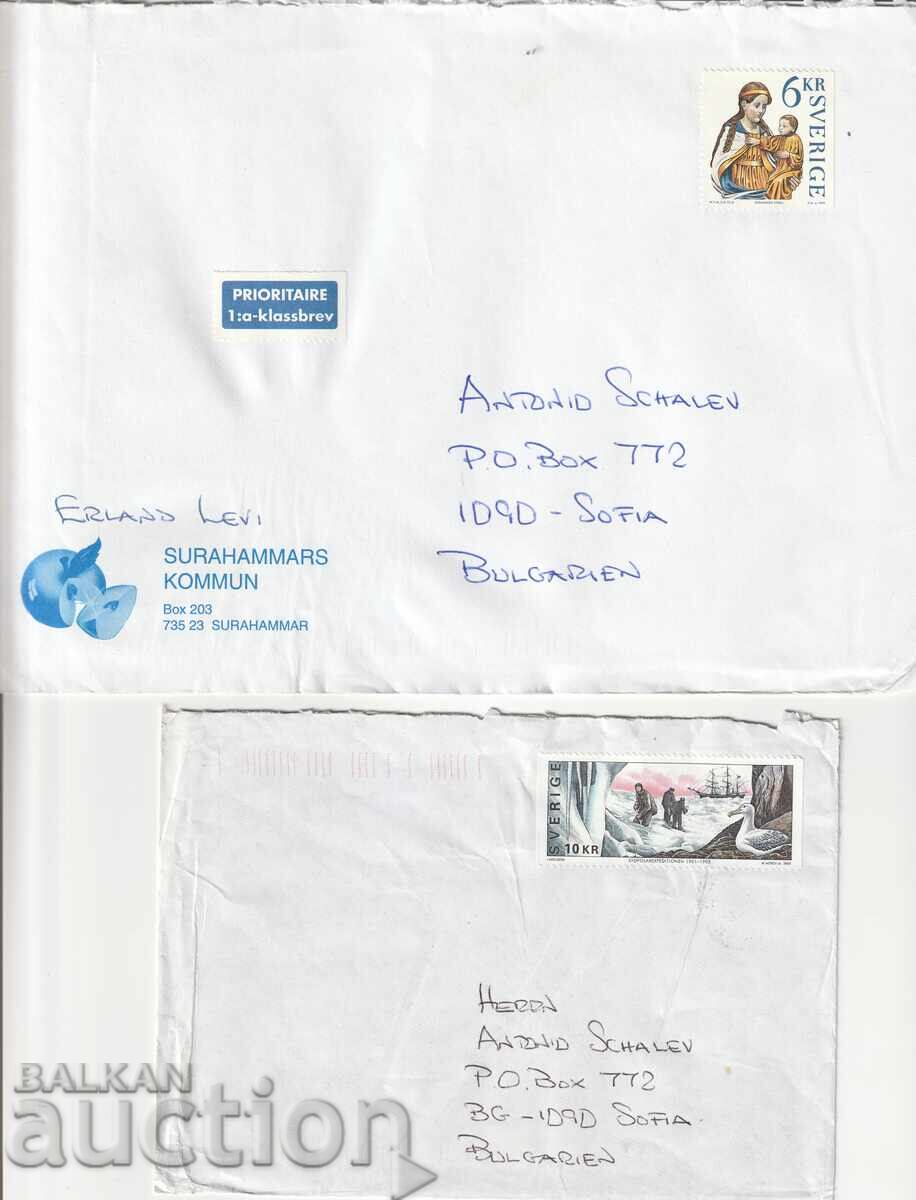 6 KR
SVERIGE
PRIORITAIRE
1:a-klassbrev
ANTONIO SCHALEV
P.O. BOX 772
1090 - SOFIA
BULGARIEN
ERLAND LEVI
SURAHAMMARS
KOMMUN
Box 203
735 23 SURAHAMMAR
SVERIGE
10 KR
SYDPOLAREXPEDITIONEN 1901-1903
HERRN
ANTONIO SCHALEV
P.O. BOX 772
BG - 1090 SOFIA
BULGARIEN
BALKAN
auction